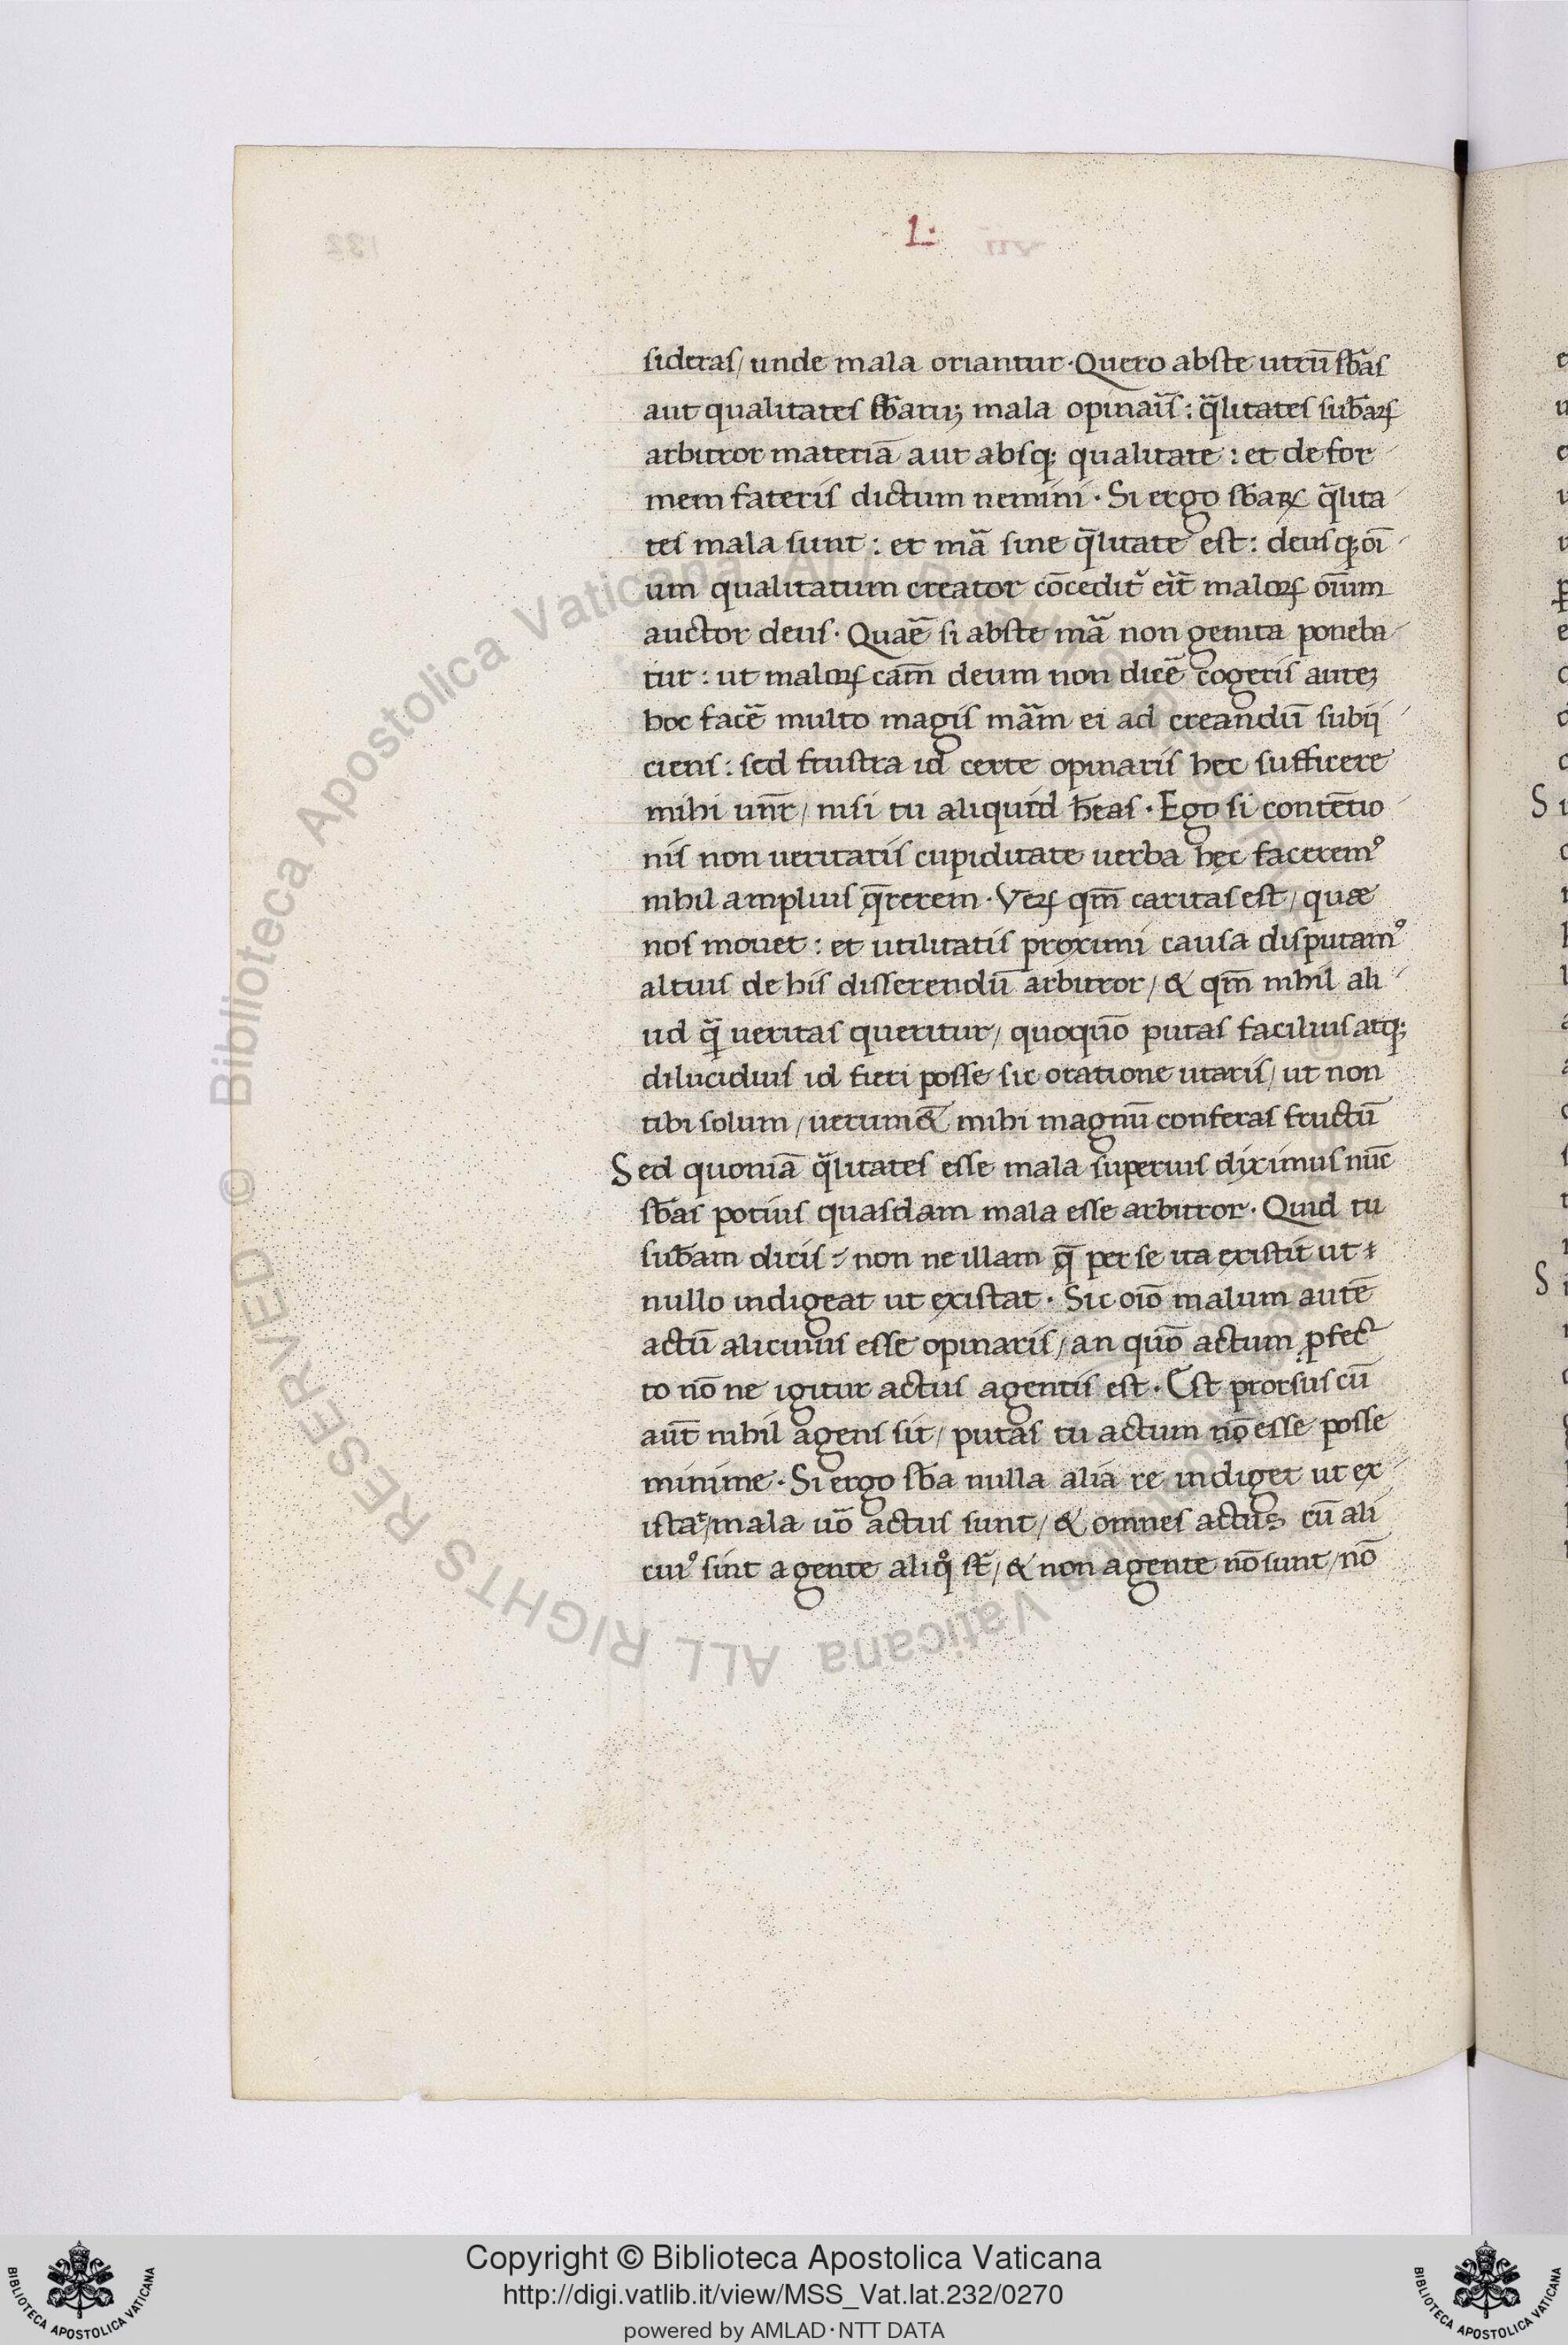 L:
sideras/ unde mala oriantur·Quero abste utrū sb̄as
aut qualitates sb̄aruʒ mala opinaīs : q̄litates sub̄aꝝ
arbitror materiā aut absqꝫ qualitate : et de for
mem fateris dictum nemini · Si ergo sb̄aꝝ q̄lita
tes mala sunt : et mā sine q̄litate est : deusqꝫ oī
um qualitatum creator cōcedit᷑ eīt maloꝝ oīum
auctor deus · Quaē si abste mā non genita poneba
tur : ut maloꝝ cam̄ deum non dicē cogeris auteʒ
hoc facē multo magis mām ei ad creandū subij
ciens : sed frustra id certe opinaris hec sufficere
mihi unr̄/ nisi tu aliquid hēas · Ego si contētio
nis non ueritatis cupiditate uerba hęc facerem⁹
nihil amplius q̄rerem · Veꝝ qm̄ caritas est/ quæ
nos mouet : et utilitatis proximi causa disputam⁹
altius de his disserendū arbitror/ & qm̄ nihil ali
ud q̄ ueritas queritur/ quoquō putas facilius atqꝫ
dilucidius id fieri posse sic oratione utaris/ ut non
tibi solum/ uerum &̄ mihi magnū conferas fructū
Sed quoniā q̄litates esse mala superius diximus nūc
sb̄as potius quasdam mala esse arbitror · Quid tu
sub̄am dicis : non ne illam q̄ per se ita existit ut
nullo indigeat ut existat · Sic oīo malum autē
actū alicuius esse opinaris/ an quō actum ꝓfec
to nō ne igitur actus agentis est · Est prorsus cū
aūt nihil agens sit/ putas tu actum nō esse posse
minime · Si ergo sb̄a nulla alia re indiget ut ex
istat/ mala uō actus sunt/ & omnes actus cū ali
cui⁹ sint agente aliq̊ st̄/ & non agente nō sunt/ nō
Copyright © Biblioteca Apostolica Vaticana
http://digi.vatlib.it/view/MSS_Vat.lat.232/0270
powered by AMLAD·NTT DATA
BIBLIOTECA APOSTOLICA VATICANA
BIBLIOTECA APOSTOLICA VATICANA
© Biblioteca Apostolica Vaticana ALL RIGHTS RESERVED